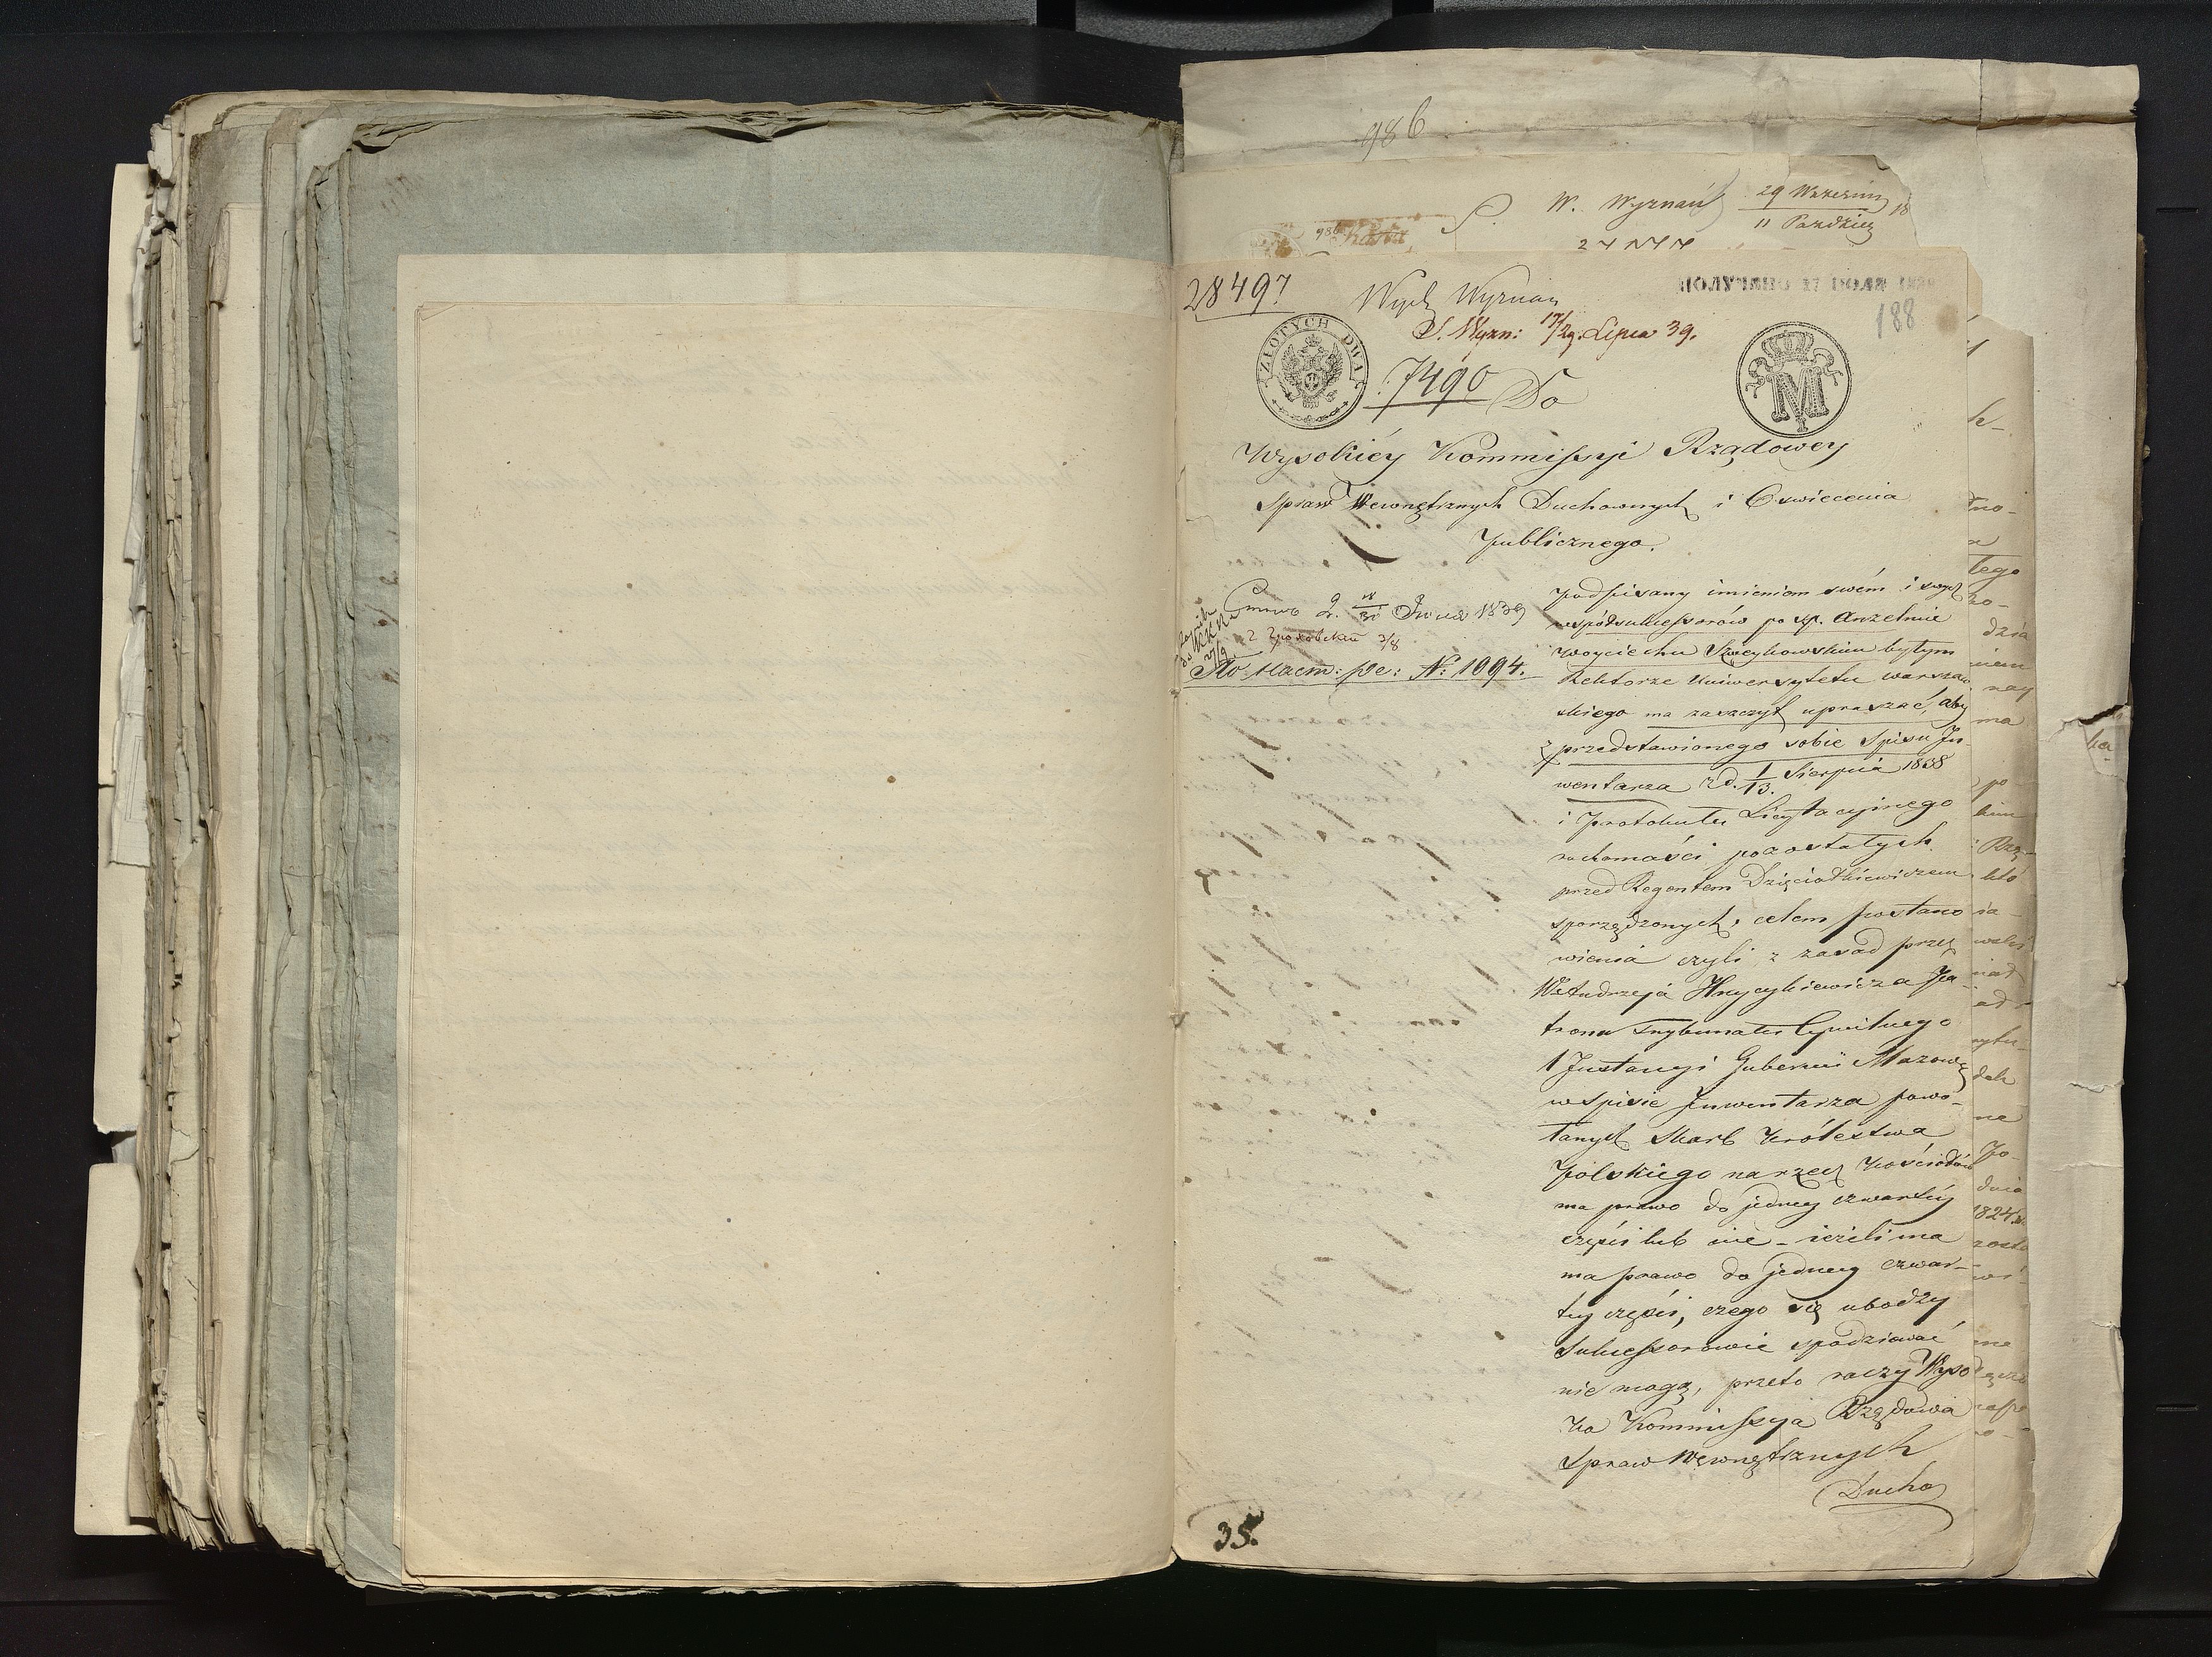 986
S. W. Wyznań 29 Wrzesnia 18
11 Pazdzier
986
28497
Wydz Wyznan
ПОЛУЧЕНО 17 ІЮЛЯ 1839
188
S. Wyzn: 17/29 Lipca 39.
ZŁOTYCH DWA
7490 Do
M
Wysokiéy Kommissyi Rządowey
Spraw Wewnętrznych Duchownych i Oswiecenia
Publicznego.
Podpisany imieniem swém i swych
współsukcessorów po śp. Anzelmie
Woyciechu Szweykowskim byłym
Rektorze Uniwersytetu Warszaw
skiego ma zaszczyt upraszać, aby
z przedstawionego sobie Spisu In-
wentarza z d. 1/13. Sierpnia 1838
i Protokułu Licytacyjnego
ruchomości pozostałych
przed Regentem Dzięciałkiewiczem
sporządzonych, celem postano
wienia czyli z zasad przez
W. Andrzeja Hryckiewicza Pa-
trona Trybunału Cywilnego
1 Instancyi Gubernii Mazow:
w Spisie Inwentarza powo-
łanych Skarb Królestwa
Polskiego na rzecz Kościołów
ma prawo do jedney czwartéy
części lub nie - ieżeli ma
ma prawo do jedney czwar-
téy części, czego się ubodzy
Sukcessorowie spodziewać
nie mogą, przeto raczy Wyso
ka Kommissyja Rządowa
Spraw Wewnętrznych
Ducho
18/31 Іюля 1839
3/8
По наст: ре: №: 1094.
35.